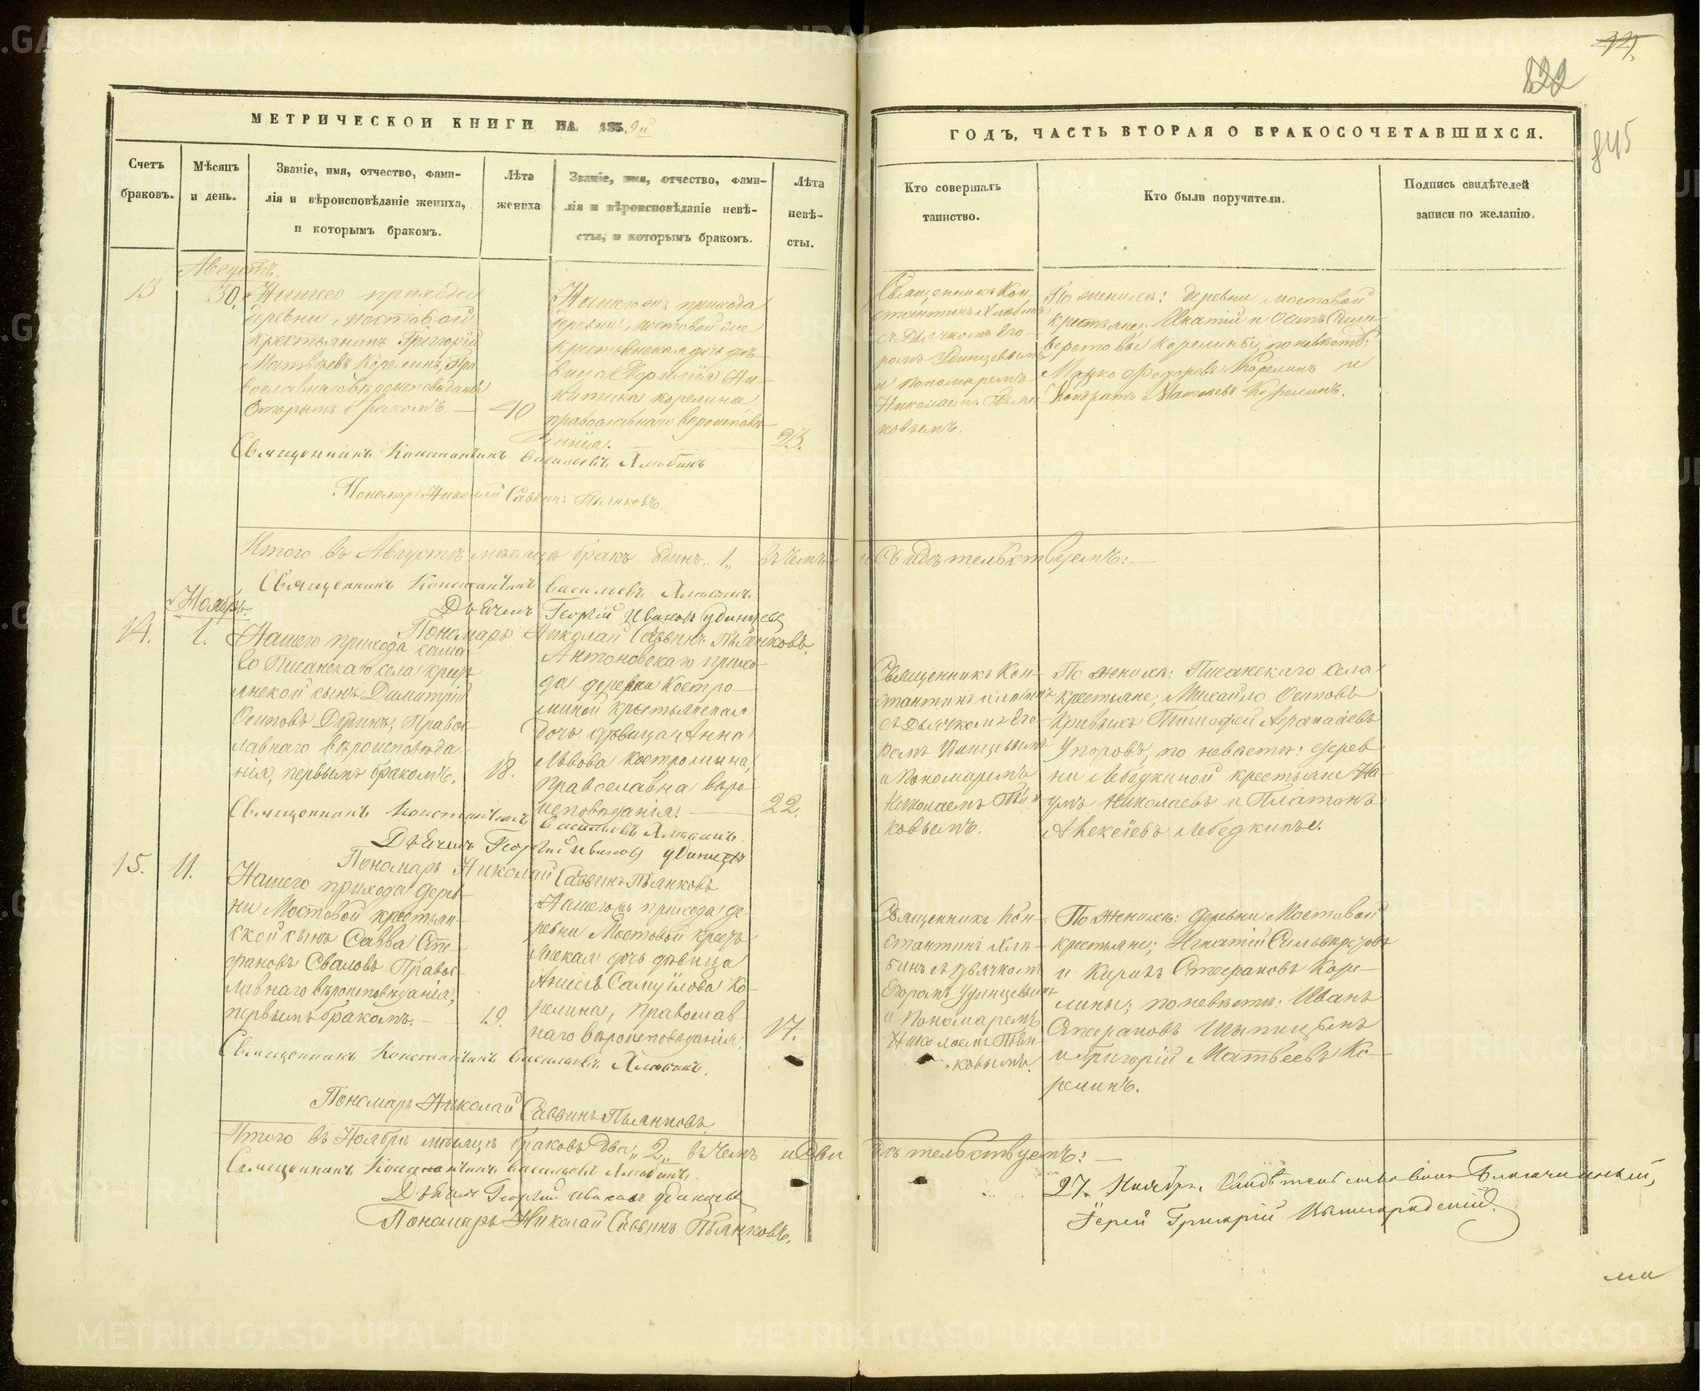 МЕТРИЧЕСКОЙ КНИГИ НА 1859й
ГОДЪ, ЧАСТЬ ВТОРАЯ О БРАКОСОЧЕТАВШИХСЯ.
122
845
Счетъ браковъ.
Мѣсяцъ и день.
Званіе, имя, отчество, фами-
лія и вѣроисповѣданіе жениха,
и которымъ бракомъ.
Лѣта
жениха
Званіе, имя, отчество, фами-
лія и вѣроисповѣданіе невѣ-
сты, и которымъ бракомъ.
Лѣта
невѣ-
сты.
Кто совершалъ
таинство.
Кто были поручители.
Подпись свидѣтелей
записи по желанію.
Августъ.
13
30.
Нашего прихода
деревни Мостовой
крестьянинъ Григорій
Матвѣевъ Корелинъ, Пра
вославнаго вѣроисповѣданія
вторымъ бракомъ —
40
Нашегожъ прихода
деревни Мостовой
крестьянская дочь дѣ-
вица
Ни-
китина Корелина
православнаго вѣроисповѣ-
данія.
23.
Священникъ Кон-
стантинъ Хлыбинъ
съ Дьячкомъ Его-
ромъ Удинцевымъ
и Пономаремъ
Николаемъ Пьян-
ковымъ.
По женихѣ: деревни Мостовой
крестьяне; Игнатій и Осипъ Сили-
верстовы Корелины; по невѣстѣ:
Марко Федоровъ Корелинъ и
Кондратъ Матвѣевъ Корелинъ.
Священникъ Константинъ Васильевъ Хлыбинъ
Пономарь Николай Саввинъ Пьянковъ.
Итого въ Августѣ мѣсяцѣ бракъ одинъ „1„ въ чемъ и свидѣтельствуемъ: —
Священникъ Константинъ Васильевъ Хлыбинъ
Дьячекъ Георгій Ивановъ Удинцевъ
Пономарь Николай Саввинъ Пьянковъ.
Ноябрь.
14.
1.
Нашего прихода сама-
го Писанскаго села кресть
янской сынъ Димитрій
Осиповъ
Правос-
лавнаго вѣроисповѣда
нія, первымъ бракомъ.
18.
Антоновскаго прихо-
да деревни Костро-
миной крестьянская
дочь дѣвица Анна
Львова Костромина,
Православна вѣро-
исповѣданія. —
22.
Священникъ Кон-
стантинъ Хлыбинъ
съ Дьячкомъ Его-
ромъ Удинцевымъ
и Пономаремъ
Николаемъ Пьян-
ковымъ.
По женихѣ: Писанскаго села
крестьяне; Михайло Осиповъ
Кривыхъ Тимофей Аѳанасіевъ
Упоровъ, по невѣстѣ: дерев-
ни Лебедкиной крестьяне На-
умъ Николаевъ и Платонъ
Алексіевъ Лебедкины.
Священникъ Константинъ Васильевъ Хлыбинъ
Дьячекъ Георгій Ивановъ Удинцевъ
Пономарь Николай Саввинъ Пьянковъ
15.
11.
Нашего прихода дерев-
ни Мостовой крестьян-
ской сынъ Савва Сте-
фановъ Сваловъ Правос-
лавнаго вѣроисповѣданія,
первымъ бракомъ. —
19.
Нашегожъ прихода де-
ревни Мостовой кресть-
янская дочь дѣвица
Анисья Самуилова Ко-
релина, Православ
наго вѣроисповѣданія.
17.
Священникъ Кон-
стантинъ Хлы-
бинъ съ Дьячкомъ
Егоромъ Удинцевымъ
и Пономаремъ
Николаемъ Пьян-
ковымъ.
По женихѣ: деревни Мостовой
крестьяне; Игнатій Сильверстовъ
и Кирилъ Стефановъ Коре-
лины; по невѣстѣ: Иванъ
Стефановъ
и Григорій Матвѣевъ Ко-
релинъ.
Священникъ Константинъ Васильевъ Хлыбинъ.
Пономарь Николай Саввинъ Пьянковъ.
Итого въ Ноябрѣ мѣсяцѣ браковъ два „2„ въ чемъ и свидѣтельствуемъ: —
Священникъ Константинъ Васильевъ Хлыбинъ.
Дьячекъ Георгій Ивановъ Удинцевъ
Пономарь Николай Саввинъ Пьянковъ.
27. Ноября. Свидѣтельствовалъ Благочинный,
Іерей Григорій Вышегородскій.
METRIKI.GASO-URAL.RU